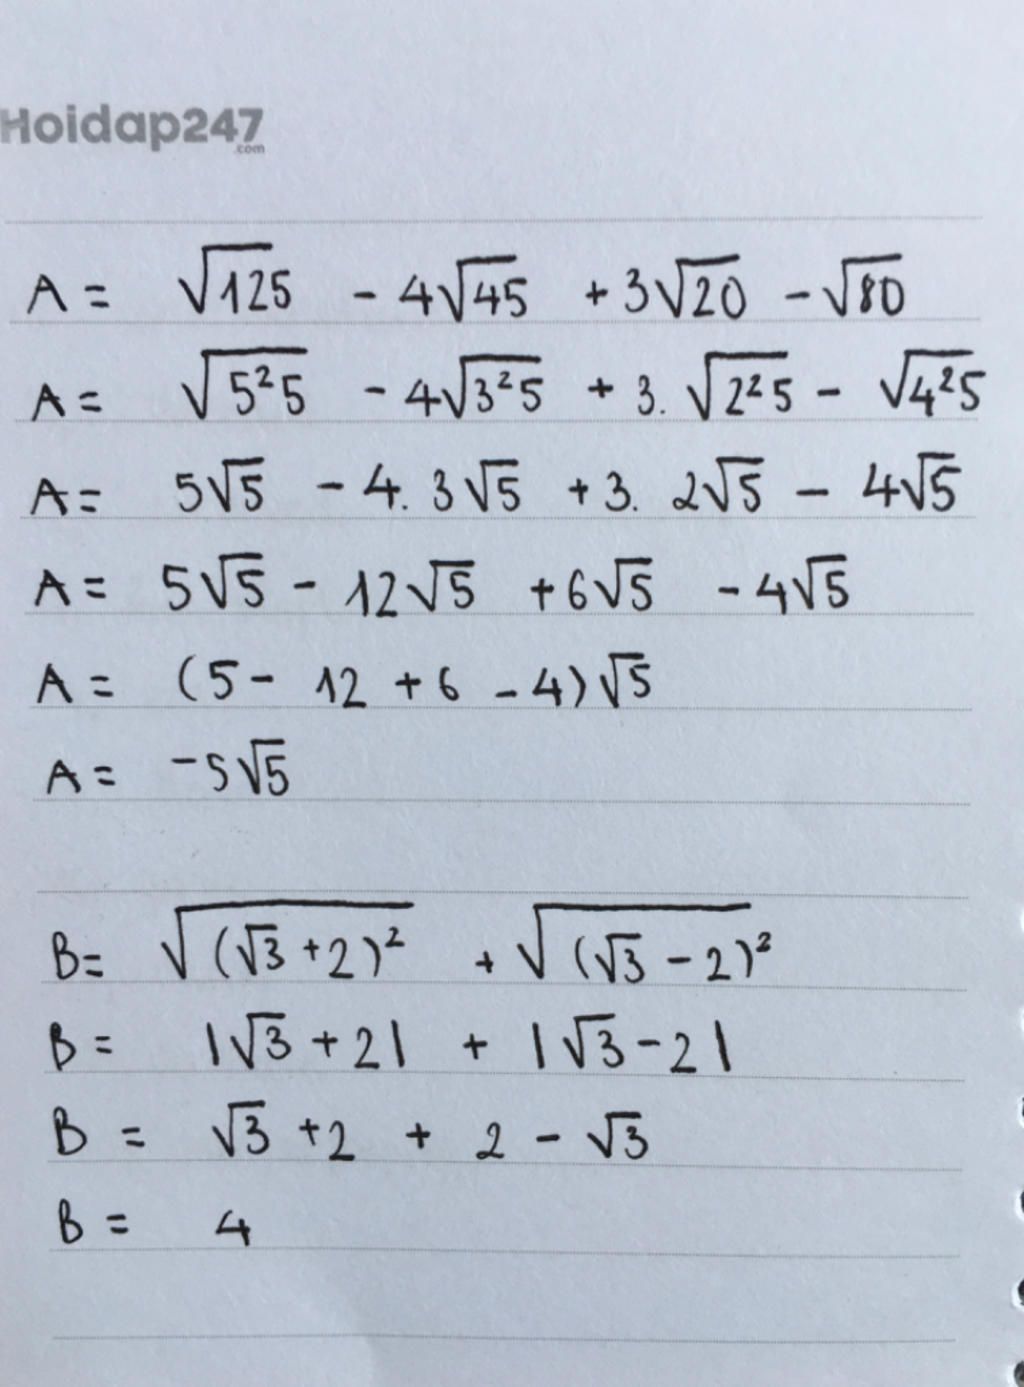 Hoidap247
.com
A = √125 - 4√45 + 3√20 - √80
A = √5²5 - 4√3²5 + 3. √2²5 - √4²5
A = 5√5 - 4. 3√5 + 3. 2√5 - 4√5
A = 5√5 - 12√5 + 6√5 - 4√5
A = (5 - 12 + 6 - 4)√5
A = -5√5
B = √(√3 + 2)² + √(√3 - 2)²
B = |√3 + 2| + |√3 - 2|
B = √3 + 2 + 2 - √3
B = 4